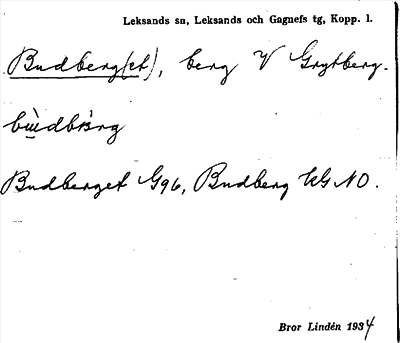 Leksands sn, Leksands och Gagnefs tg, Kopp. l.
Budberg(et), berg V Grytberg.
Budberget G96, Budberg KG NO.
Bror Lindén 1934